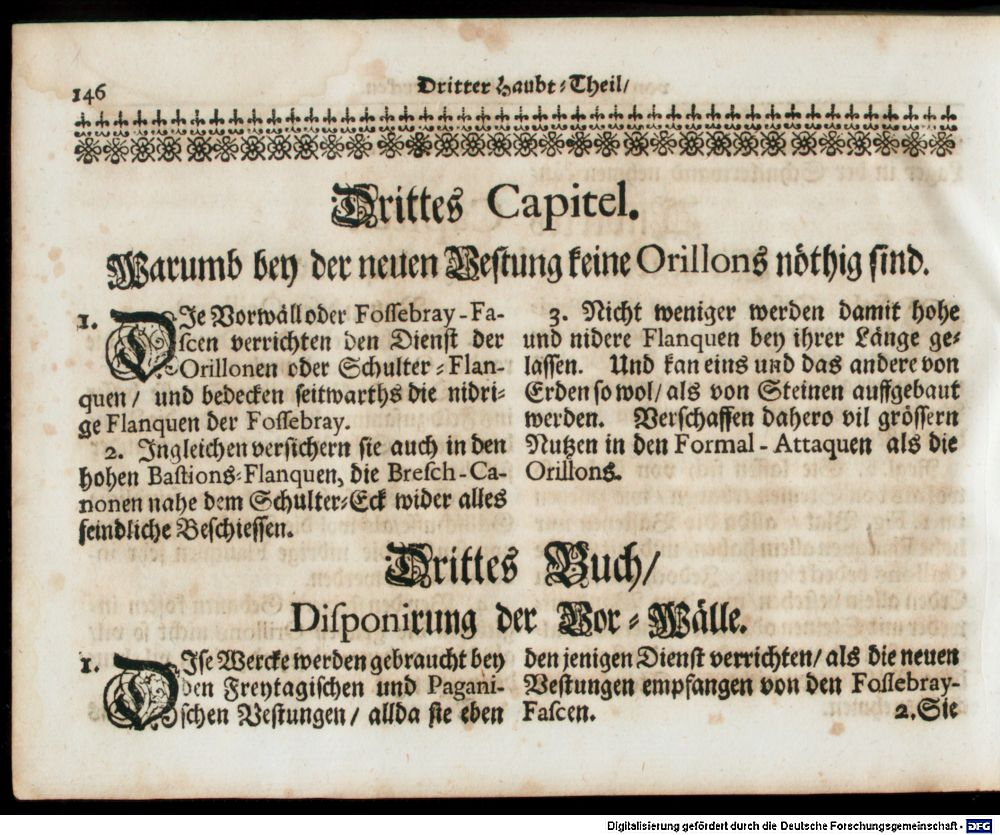 146
Dritter Haubt-Theil/
Drittes Capitel.
Warumb bey der neuen Vestung keine Orillons nöthig sind.
1. DIe Vorwäll oder Fossebray-Fa-
scen verrichten den Dienst der
Orillonen oder Schulter-Flan-
quen / und bedecken seitwarths die nidri-
ge Flanquen der Fossebray.
2. Ingleichen versichern sie auch in den
hohen Bastions-Flanquen, die Bresch-Ca-
nonen nahe dem Schulter-Eck wider alles
feindliche Beschiessen.
3. Nicht weniger werden damit hohe
und nidere Flanquen bey ihrer Länge ge-
lassen. Und kan eins und das andere von
Erden so wol / als von Steinen auffgebaut
werden. Verschaffen dahero vil grössern
Nutzen in den Formal-Attaquen als die
Orillons.
Drittes Buch/
Disponirung der Vor-Wälle.
1. DIse Wercke werden gebraucht bey
den Freytagischen und Pagani-
schen Vestungen / allda sie eben
den jenigen Dienst verrichten / als die neuen
Vestungen empfangen von den Fossebray-
Fascen.
2. Sie
Digitalisierung gefördert durch die Deutsche Forschungsgemeinschaft - DFG